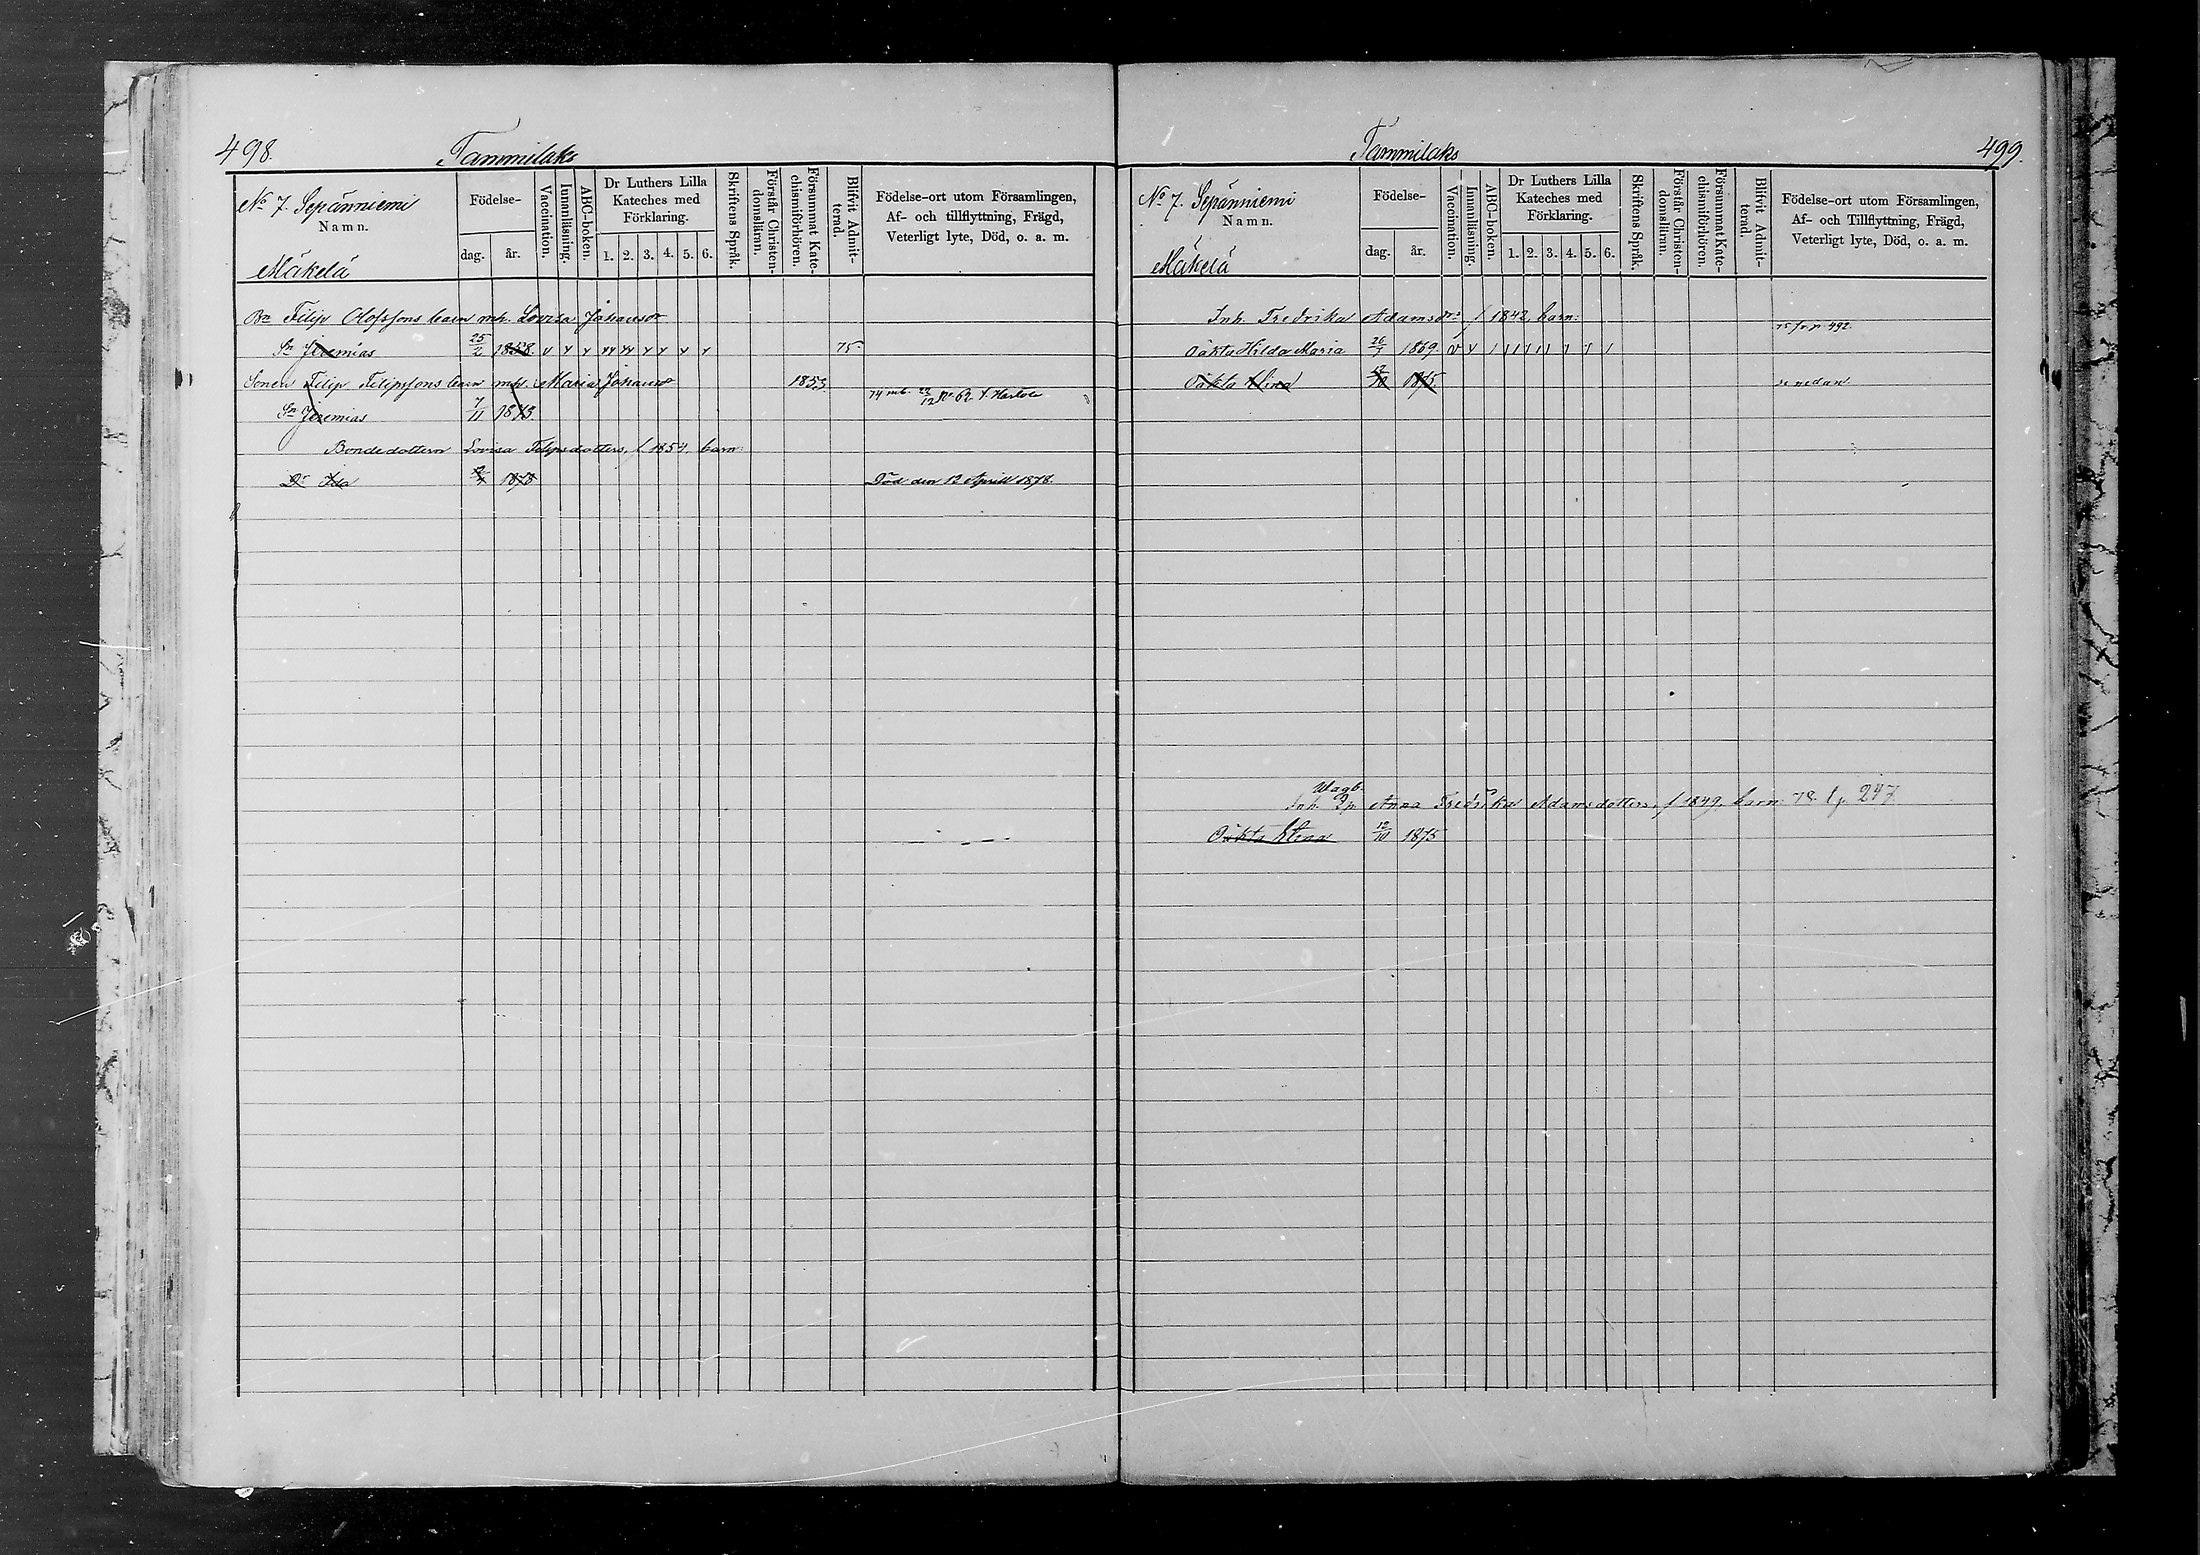 498.
Tammilaks
No 7. Sepänniemi
Namn.
Mäkelä
Födelse-
dag.
år.
Vaccination.
Innanläsning.
ABC-boken.
Dr Luthers Lilla
Kateches med
Förklaring.
1. 2. 3. 4. 5. 6.
Skriftens Språk.
Förstår Christen-
domsläran.
Försummat Kate-
chismiförhören.
Blifvit Admit-
terad.
Födelse-ort utom Församlingen,
Af- och tillflyttning, Frägd,
Veterligt lyte, Död, o. a. m.
Bn Filip Olofssons barn mh. Lovisa Johansdr
Sn Jeremias 25/2 1858. v v v vv vv v v v v 75
Sonen Filip Filipssons barn mh. Maria Johansdr 1853
74 mb. 22/12 No 62 t. Hartola
Sn Jeremias 7/11 1873
Bondedottern Lovisa Filipsdotters, f. 1854, barn:
Dr Ida 1878 Död den 12 Aprill 1878.
499.
Tammilaks
No 7. Sepänniemi
Namn.
Mäkelä
Födelse-
dag.
år.
Vaccination.
Innanläsning.
ABC-boken.
Dr Luthers Lilla
Kateches med
Förklaring.
1. 2. 3. 4. 5. 6.
Skriftens Språk.
Förstår Christen-
domsläran.
Försummat Kate-
chismiförhören.
Blifvit Admit-
terad.
Födelse-ort utom Församlingen,
Af- och Tillflyttning, Frägd,
Veterligt lyte, Död, o. a. m.
Inh. Fredrika Adamsdrs f 1842, barn:
75 fr. p. 492.
Oäkta Hilda Maria 26/7 1869. v v
Oäkta Stina 12/10 1875 se nedan
Inh. Anna Fredrika Adamsdotters, f 1849, barn 78. t p. 247
Oäkta Stina 12/10 1875